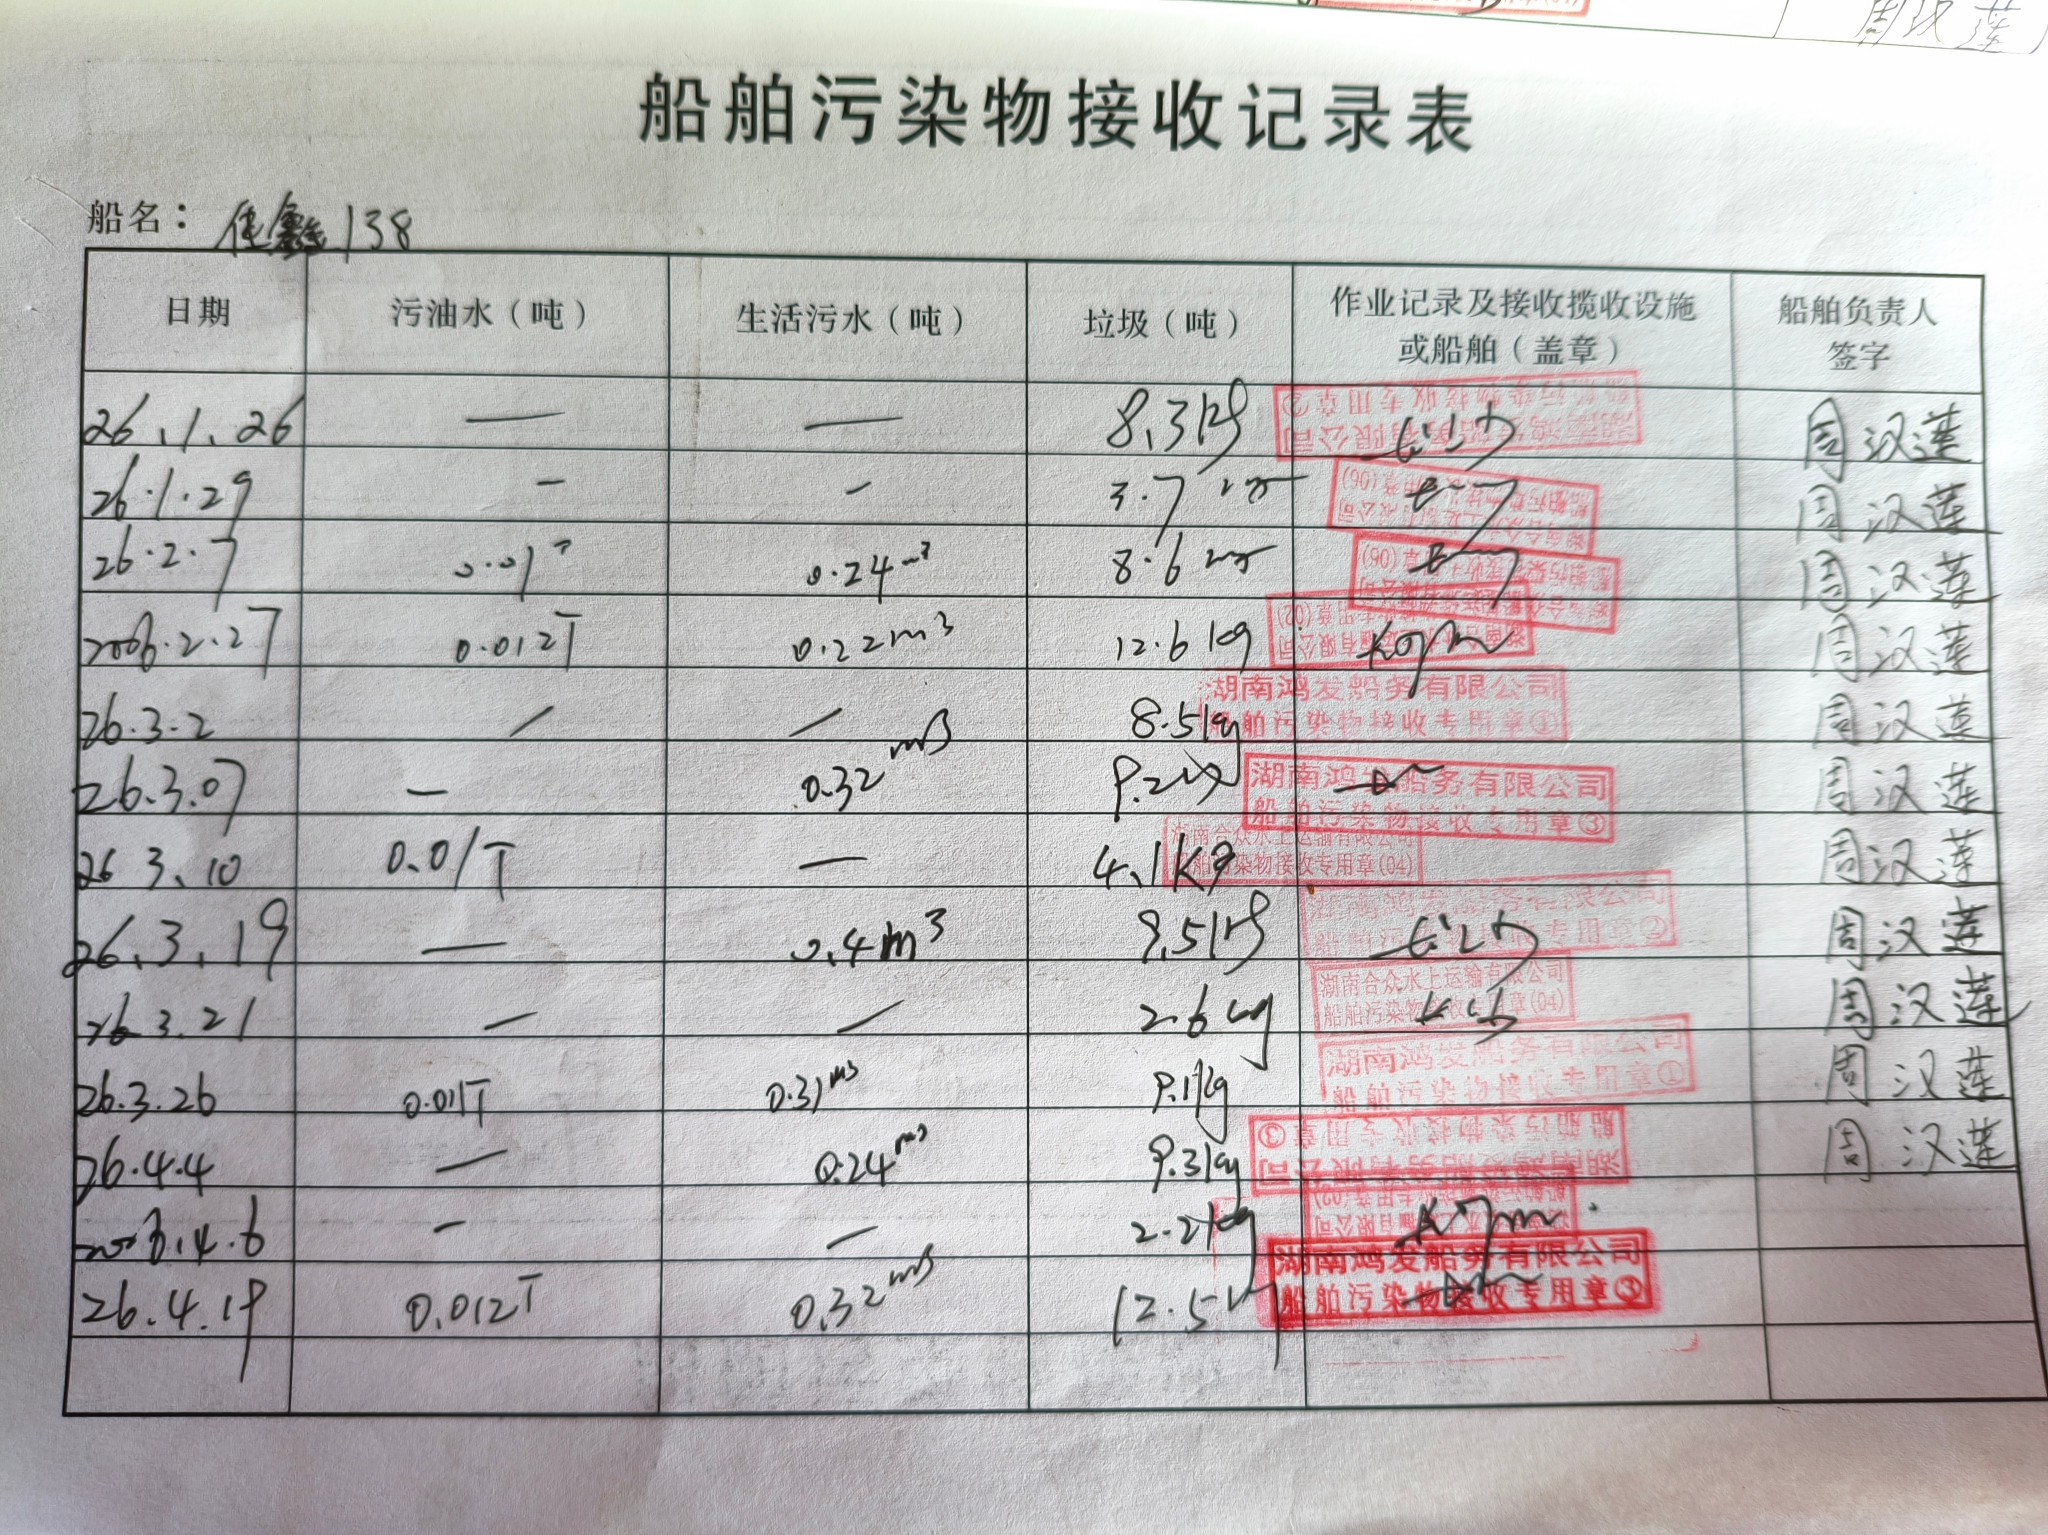 周汉莲
船舶污染物接收记录表
船名： 佳 138
日期 污油水（吨） 生活污水（吨） 垃圾（吨） 作业记录及接收揽收设施或船舶（盖章） 船舶负责人签字
26.1.26 — — 8.3kg 周汉莲
26.1.29 — — 3.7kg 周汉莲
26.2.7 0.01T 0.24m³ 8.6kg 周汉莲
2006.2.27 0.012T 0.22m³ 12.6kg 周汉莲
26.3.2 / / 8.5kg 湖南鸿发船务有限公司 船舶污染物接收专用章① 周汉莲
26.3.07 — 0.32m³ 9.2kg 湖南鸿发船务有限公司 船舶污染物接收专用章③ 周汉莲
26 3.10 0.01T — 4.1kg 湖南合众水上运输有限公司 船舶污染物接收专用章(04) 周汉莲
26.3.19 — 0.4m³ 9.5kg 湖南鸿发船务有限公司 船舶污染物接收专用章② 周汉莲
26.3.21 — / 2.6kg 湖南合众水上运输有限公司 船舶污染物接收专用章(04) 周汉莲
26.3.26 0.011T 0.31m³ 9.1kg 湖南鸿发船务有限公司 船舶污染物接收专用章① 周汉莲
26.4.4 — 0.24m³ 9.3kg 湖南鸿发船务有限公司 船舶污染物接收专用章③ 周汉莲
2006.4.6 — — 2.2kg
26.4.19 0.012T 0.32m³ 12.5kg 湖南鸿发船务有限公司 船舶污染物接收专用章③